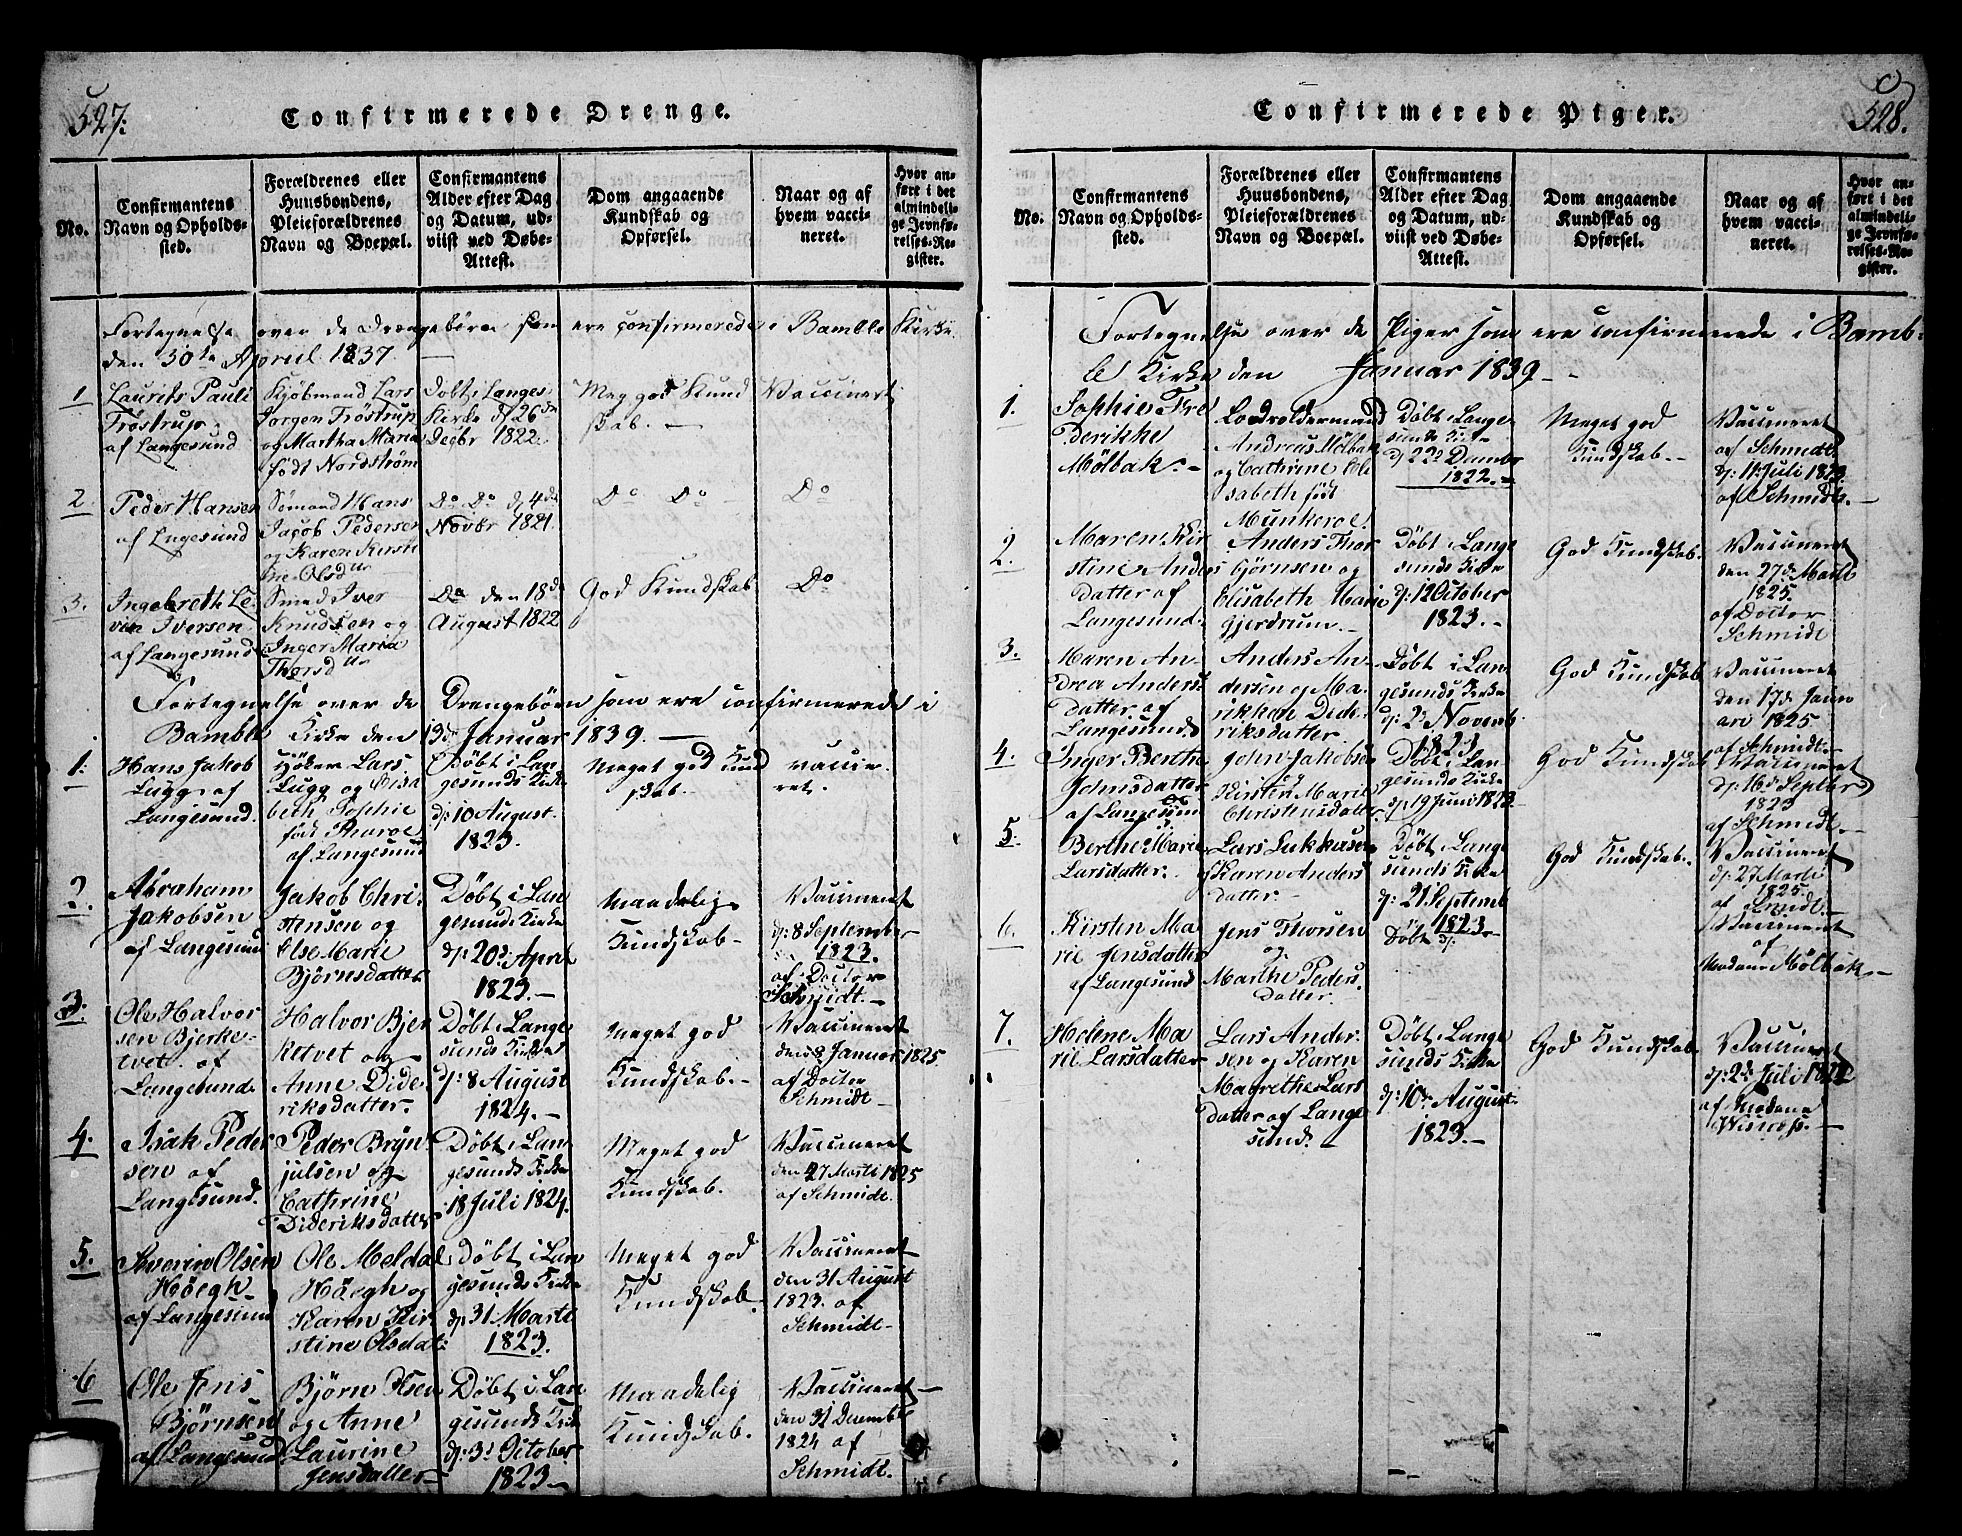 527:
Confirmerede Drenge.
No.
Confirmantens
Navn og Opholds-
sted.
Forældrenes eller
Huusbondens,
Pleieforældrenes
Navn og Boepæl.
Confirmantens
Alder efter Dag
og Datum, ud-
viist ved Døbe-
Attest.
Dom angaaende
Kundskab og
Opførsel.
Naar og af
hvem vacci-
neret.
Hvor an-
ført i det
almindeli-
ge Jevnfø-
relses-Re-
gister.
Fortegnelse over de Drengebörn som ere confirmerede i Bamble Kirke
den 30te April 1837.
1
Laurits Pauli
Tröstrup
af Langesund
Kjöbmand Lars
Jörgen Tröstrup
og Martha Maria
födt Nordström
Dobt i Langes
Kirke d 26de
Decbr 1822
Meg god Kund
skab. —
Vaccinert
2
Peder Hansen
af Lngesund
Sömand Hans
Jacob Pedersen
og Karen Kirsti
ne Olsdtr
Do Do d 4de
Novbr 1821.
Do Do
Do
3.
Ingebreth Le-
vin Iversen
af Langesund
Smed Iver
Knudsen og
Inger Maria
Thorsdtr
Do den 18de
August 1822
God Kundskab
Do
Fortegnelse over de Drengebörn som ere confirmerede i
Bamble Kirke den 13de Januar 1839. —
1:
Hans Jakob
Lugg af
Langesund.
Höker Lars
Lugg og Elisa
beth Sophie
föd
af Langesund
Döbt i Lan
gesunds Kirke
d: 10 August.
1823.
Meget god Kund
skab.
vaccine-
ret.
2.
Abraham
Jakobsen
af Langesund
Jakob Chri
stensen og
Else Marie
Björnsdatter
Döbt i Lan
gesunds Kirke
d: 20d: April
1823. —
Maadelig
Kundskab. —
Vaccineret
d: 8 September
1823.
af Doctor
Schmidt. —
3.
Ole Halvor
sen Bjerke-
tvet af
Langesund
Halvor Bjer
ketvet og
Anne Dide
riksdatter.
Döbt i Lange
sunds Kirke
d: 8 August
1824. —
Meget god
Kundskab. —
Vaccineret
den 8 Januar 1825.
af Docter
Schmidt —
4.
Isak Peder
sen af
Langesund.
Peder Bryn
julsen og
Cathrine
Dideriksdatter
Döbt i Lan
gesunds Kirke
18 Juli 1824.
Meget god
Kundskab.
Vaccineret
den 27 Marti 1825
af Schmidt.
5.
Severin Olsen
Höegh
af Langesund
Ole Meldal
Höegh og
Karen Kir
stine Olsdat:
Döbt i Lan
gesunds Kirke
d: 31 Marti
1823.
Meget god
Kundskab.
Vaccineret
den 31 August
1823. af
Schmidt —
6
Ole Jens
Björnsen
af Langesund
Björn Olsen
og Anne
Laurine
Jensdatter —
Döbt i Lan
gesunds Kirke
d: 3d October
1823 —
Maadelig
Kundskab.
Vaccineret —
den 31 Decembr
1824 af
Schmidt.
528.
Confirmerede Piger.
No.
Confirmantens
Navn og Opholds-
sted.
Forældrenes eller
Huusbondens,
Pleieforældrenes
Navn og Boepæl.
Confirmantens
Alder efter Dag
og Datum, ud-
viist ved Døbe-
Attest.
Dom angaaende
Kundskab og
Opførsel.
Naar og af
hvem vacci-
neret.
Hvor an-
ført i det
almindeli-
ge Jevnfø-
relses-Re-
gister.
Fortegnelse over de Piger som ere confirmerede i Bamb-
le Kirke den Januar 1839 —
1.
Sophie Fre
derikke
Mölbak. —
Lodsoldermand
Andreas Mölbak
og Cathrine Eli
sabeth födt
Munkeroe.
Döbt i Lange
sunds Kirke
d 22d Decembr
1822. —
Meget god
Kundskab. —
Vaccineret
af Schmidt
d: 11 Juli 1823
af Schmidt. —
2.
Maren Kir
stine Anders
datter af
Langesund.
Anders Thor
björnsen og
Elisabeth Marie
Gjerdrum. —
Döbt i Lange
sunds Kirke
d: 12 October
1823. —
God Kundskab.
Vaccineret
den 27d Marti
1825.
af Doctor
Schmidt
3.
Maren An-
drea Anders
datter af
Langesund.
Anders An-
dersen og Ma
rikken Dide
riksdatter
Döbt i Lan-
gesunds Kirke
d: 2d Novemb.
1823.
God Kundskab
Vaccineret
den 17d Janu
ari 1825
af Schmidt —
4.
Inger Berthe
Johnsdatter
af Langesun
John Jakobsen
og
Kirsten Marie
Christensdatter.
Döbt i Lan-
gesunds Kirke
d: 19 Juni 1823
God Kundskab
Vaccineret
d: 16d Septbr
1823
af Schmidt. —
5.
Berthe Marie
Larsdatter.
Lars Lukkasen
Karen Anders
datter.
Döbt i Lange
sunds Kirke
d: 21 Septemb
1823. —
God Kundskab.
Vaccineret
d: 27 Marti
1825.
af Smidt. —
6.
Kirsten Ma
rie Jensdatter
af Langesund
Jens Thorsen
og
Marthe Peders
datter. —
Döbt d:
Vaccineret
af
Madame Mölbak. —
7.
Helene Ma
rie Larsdatter
Lars Ander-
sen og Karen
Magrethe Lars
datter af Lange
sund. —
Döbt i Lange
sunds Kirke
d: 10d August.
1823. —
God Kundskab.
Vaccineret
d: 2d Juli 1822
af Madame